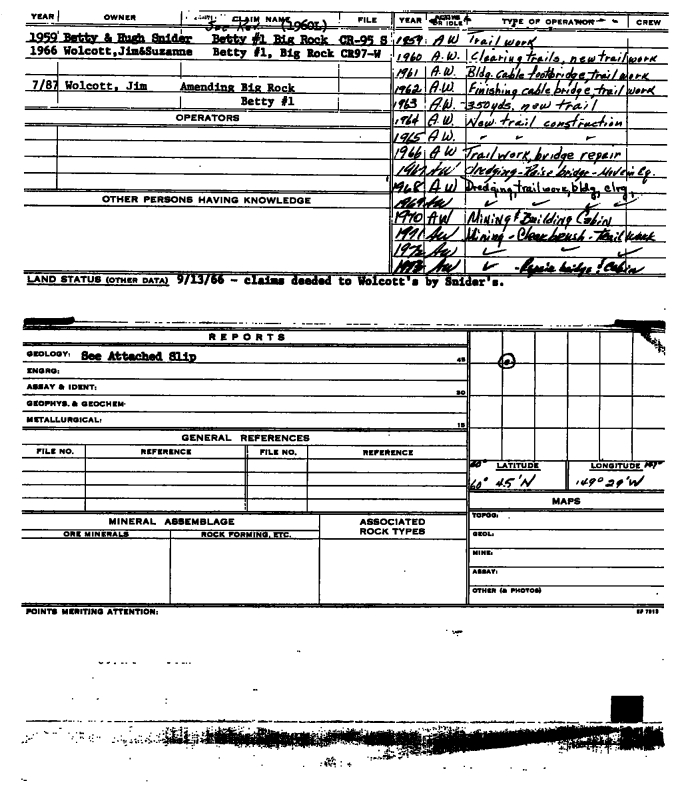 YEAR OWNER CLAIM NAME (1960L) FILE
1959 Betty & Hugh Snider Betty #1 Big Rock CR-95 S
1966 Wolcott,Jim&Suzanne Betty #1, Big Rock CR97-W
7/87 Wolcott, Jim Amending Big Rock
Betty #1
OPERATORS
OTHER PERSONS HAVING KNOWLEDGE
YEAR ACTIVE OR IDLE TYPE OF OPERATION CREW
1959 A W Trail work
1960 A.W. Clearing trails, new trail work
1961 A.W. Bldg. cable footbridge, trail work
1962 A.W. Finishing cable bridge, trail work
1963 A.W. 350yds. new trail
1964 A.W. New trail construction
1965 A.W. " " "
1966 A W Trail work, bridge repair
1967 AW dredging - Raise bridge - Move in Eq.
1968 A W Dredging, trail work, bldg, clrg,
1969 AW ✓ ✓ ✓
1970 AW Mining & Building Cabin
1971 AW Mining - Clear brush - Trail work
1972 AW ✓ ✓
1973 AW ✓ - Repair bridge & Cabin
LAND STATUS (OTHER DATA) 9/13/66 - claims deeded to Wolcott's by Snider's.
REPORTS
GEOLOGY: See Attached Slip 45
ENGRG:
ASSAY & IDENT: 30
GEOPHYS. & GEOCHEM:
METALLURGICAL: 15
GENERAL REFERENCES
FILE NO. REFERENCE FILE NO. REFERENCE
60° LATITUDE LONGITUDE 149°
60° 45'N 149° 29'W
MAPS
TOPOG:
GEOL:
MINE:
ASSAY:
OTHER (& PHOTOS)
MINERAL ASSEMBLAGE ASSOCIATED ROCK TYPES
ORE MINERALS ROCK FORMING, ETC.
POINTS MERITING ATTENTION: